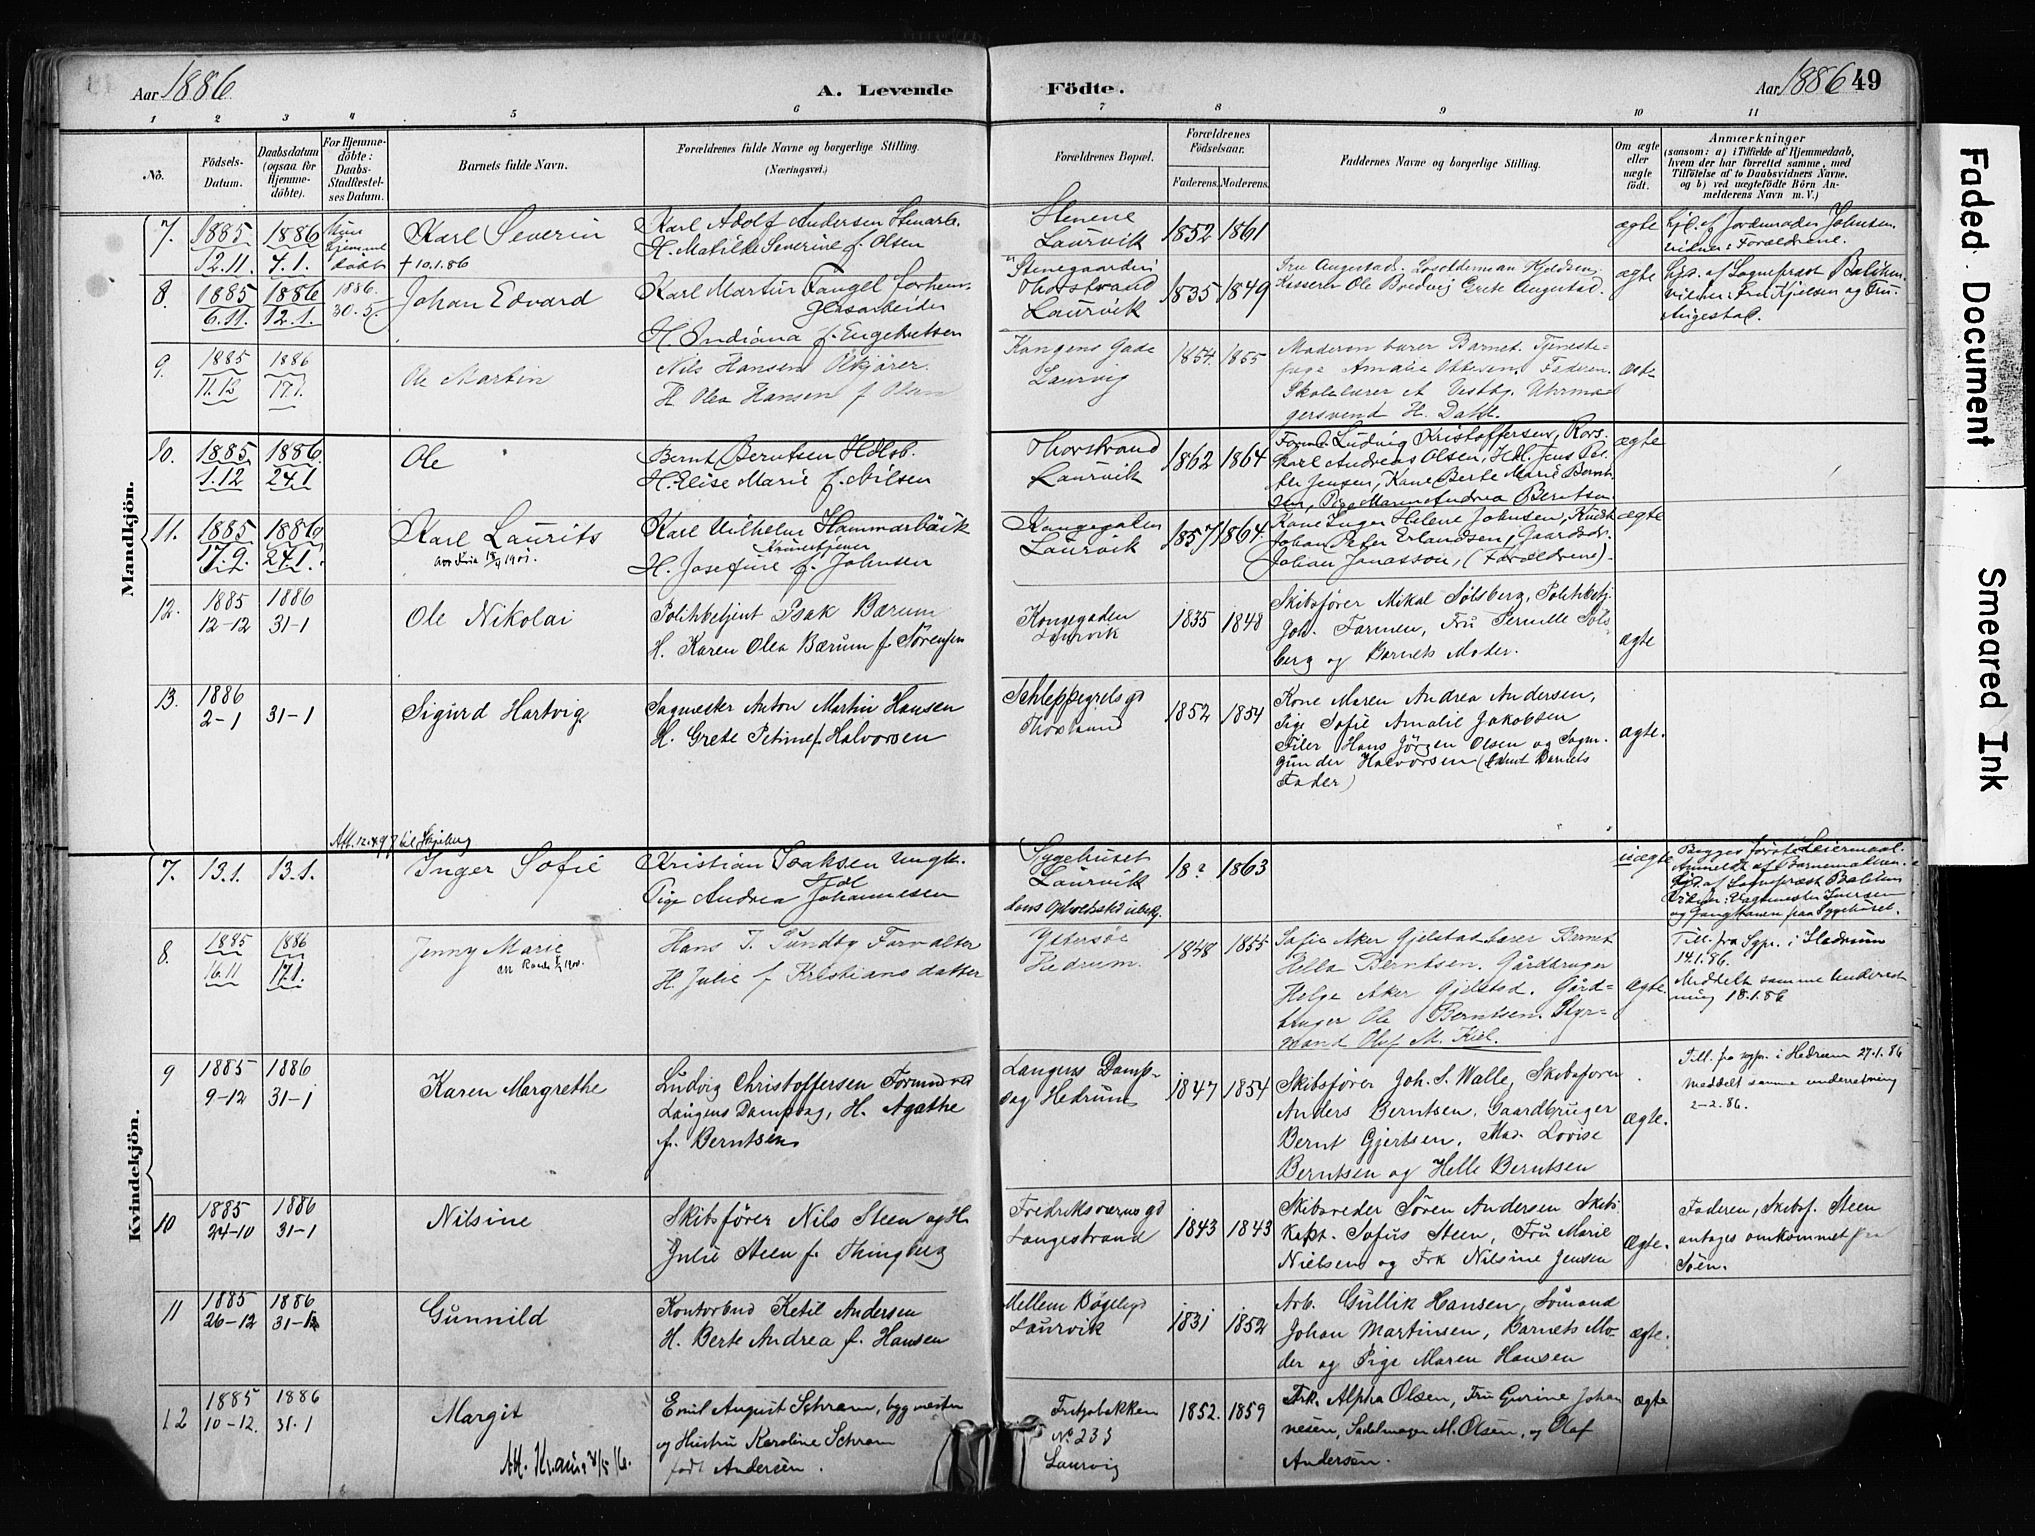 Aar 1886
A. Levende
Födte.
Aar 1886 49
1 2 3 4 5 6 7 8 9 10 11
No.
Födsels-
Datum.
Daabsdatum
(ogsaa for
Hjemme-
döbte).
For Hjemme-
döbte:
Daabs-
Stadfæstel-
ses Datum.
Barnets fulde Navn.
Forældrenes fulde Navne og borgerlige Stilling.
(Næringsvei.)
Forældrenes Bopæl.
Forældrenes
Födselsaar.
Faderens. Moderens.
Faddernes Navne og borgerlige Stilling.
Om ægte
eller
uægte
födt.
Anmærkninger
(saasom: a) i Tilfælde af Hjemmedaab,
hvem der har forrettet samme, med
Tilföielse af to Daabsvidners Navne,
og b) ved uægtefödte Börn An-
melderens Navn m. V.)
Mandkjön.
7. 1885 12.11. 1886 4.1.
Kun
hjemme
döbt
Karl Severin
† 10.1.86
Karl Adolf Andersen Stenarb.
H. Matilde Severine f. Olsen
Stenene
Laurvik
1852 1861
ægte
Hjd. af Jordemoder Johnsen
Vidner: Forældrene.
8. 1885 6.11. 1886 12.1.
1886.
30.5.
Johan Edvard
Karl Martin Rangel forhen
Glasarbeider
H. Indiana f. Engebretsen
Stenegaarden
Thorstrand
Laurvik
1835 1849
Fru Augestad. Losoldermand Kjeldsen,
Kasserer Ole Bredvig Grete Augestad.
ægte
Hjd. af Sogneprest
Vidner: Fru Kjelsen og Fru
Augestad.
9. 1885 11.12 1886 17.1.
Ole Martin
Nils Hansen Ölkjører.
H. Olea Hansen f. Olsen
Kongens Gade
Laurvig
1854. 1855
Moderen bærer Barnet. Tjeneste-
pige Amalie Ottersen. Faderen.
Skolelærer A Vestby. Uhrma-
gersvend H. Dahl.
ægte
10. 1885 1.12 1886 24.1
Ole
Bernt Berntsen Hdlsb.
H. Elise Marie f. Nilsen
Thorstrand
Laurvik
1862 1864
Formd. Ludvig Kristoffersen, Kors.
Karl Andreas Olsen, Hdl. Jens
Jensen, Kone Berte Marie Bernt-
sen, Pige Maren Andrea Berntsen
ægte
11. 1885 17.9. 1886 24.1.
Karl Laurits
1901.
Karl Vilhelm Hammarbäck
H. Josefine f. Johnsen
Kongegaden
Laurvik
1857 1864
Kone Inger Helene Johnsen, Kudsk
Johan Peter Erlandsen, Gaardsdr.
Johan Jonasson, (Forældrene).
ægte
12. 1885 12-12 1886 31-1
Ole Nikolai
Politibetjent Isak Bærum
H. Karen Olea Bærum f. Sörensen
Kongegaden
Laurvik
1835 1848
Skibsfører Mikal Sølsberg, Politibetj.
Joh. Farmen, Fru Pernille Søls-
berg og Barnets Moder.
ægte
13. 1886 2-1 31-1
Sigurd Hartvig
Sagmester Anton Martin Hansen
H. Grete Petrine f. Halvorsen
Schleppegrels gd
Thorstrand
1852 1854
Kone Maren Andrea Andersen,
Pige Sofie Amalie Jakobsen
Filer Hans Jörgen Olsen og Sagm.
Gunder Halvorsen (samt Barnets
Fader)
ægte.
Kvindekjön.
Att. 12.4.97 til Skjeberg
7. 13.1. 13.1.
Inger Sofie
Kristian Isaksen Ungk.
Pige Andrea Johannesen
Sygehuset
Laurvik
hans Opholdssted ubekj.
18? 1863
uægte
Begges første Leiermaal.
Anmeldt af Barnemoderen.
Hjd. af Sogneprest
Vidner: Vagtmester Iversen
og Gangkonen paa Sygehuset.
8. 1885 16.11 1886 17.1.
Jenny Marie
Hans J. Sundby Forvalter
H. Julie f Kristiansdatter
Yttersöe
Hedrum.
1848 1855
Sofie Aker Gjelstad bærer Barnet
Hella Berntsen. Gårdbruger
Helge Aker Gjelstad. Gård-
bruger Ole Berntsen. Styr-
mand Olaf M. Kiel.
ægte.
Till. fra Sgpr. i Hedrum
14.1.86.
Meddelt samme Underret-
ning 18.1.86
9 1885 9-12 1886 31-1
Karen Margrethe
Ludvig Christoffersen Formd ved
Langens Dampsag, H. Agathe
f. Berntsen
Langens Damp-
sag Hedrum
1847 1854
Skibsfører Joh. S. Walle, Skibsfører
Anders Berntsen, Gaardbruger
Bernt Gjertsen, Mad. Lovise
Berntsen og Helle Berntsen
ægte.
Till. fra sogpr. i Hedrum 27.1.86
meddelt samme underretning
2-2.86.
10 1885 24-10 1886 31-1
Nilsine
Skibsfører Nils Steen og H.
Julie Steen f. Thingberg
Fredriksværns gd
Langestrand
1843 1843
Skibsreder Søren Andersen Skibs
kapt. Sofus Steen, Fru Marie
Nielsen og Frk Nilsine Jensen
ægte.
Faderen, Skibsf. Steen
antages omkommet paa
Søen.
11 1885 26-12 1886 31-1
Gunnild
Kontorbud Ketil Andersen
H. Berte Andrea f. Hansen
Mellem Bøgelygd
Laurvik
1831 1852
Arb. Gullik Hansen, Sömand
Johan Martinsen, Barnets Mo-
der og Pige Maren Hansen
ægte.
12 1885 10-12. 1886 31.1
Margit
Emil August Schram, bygmester
og Hustru Karoline Schram
født Andersen.
Fritzøbakken
No 235
Laurvig
1852. 1859
Frk. Alpha Olsen, Fru Gurine Johan
nesen, Sadelmager M. Olsen, og Olaf
Andersen.
ægte
Faded Document
Smeared Ink